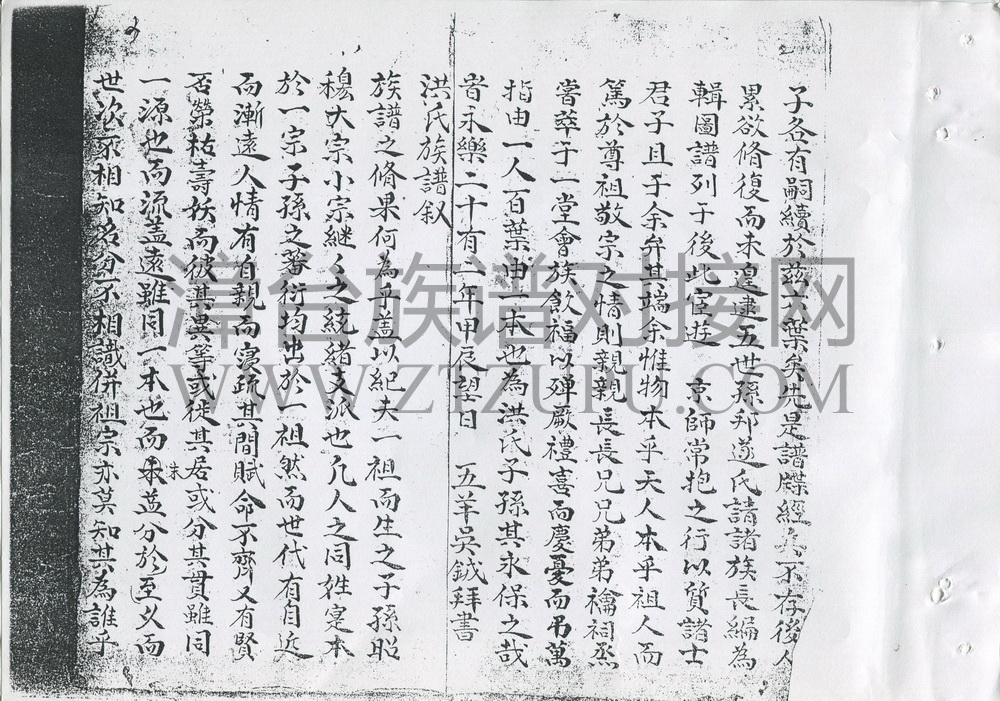 子各有嗣續於茲六葉矣先是譜牒經兵不存後人
累欲脩復而未遑逮五世孫邦遂氏請諸族長編為
輯圖譜列于後此宦遊 京師常抱之行以質諸士
君子且于余弁其端余惟物本乎天人本乎祖人而
篤於尊祖敬宗之情則親親長長兄兄弟弟禴祠烝
嘗萃于一堂會族飲福以殫厥禮喜而慶憂而弔萬
指由一人百葉由一本也為洪氏子孫其永保之哉
旹永樂二十有二年甲辰望日 五羊吳鉞拜書
洪氏族譜叙
族譜之脩果何為乎盖以紀夫一祖而生之子孫昭
穆大宗小宗継々之統緒支派也凢人之同姓寔本
於一宗子孫之蕃衍均出於一祖然而世代有自近
而漸遠人情有自親而寖疏其間賦命不齊又有賢
否榮枯壽妖而彼其異等或徙其居或分其貫雖同
一源也而流盖遠雖同一本也而末益分於至乂而
世次不相知名分不相識併祖宗亦莫知其為誰乎
末
津台族谱对接网
WWW.ZTZUPU.COM